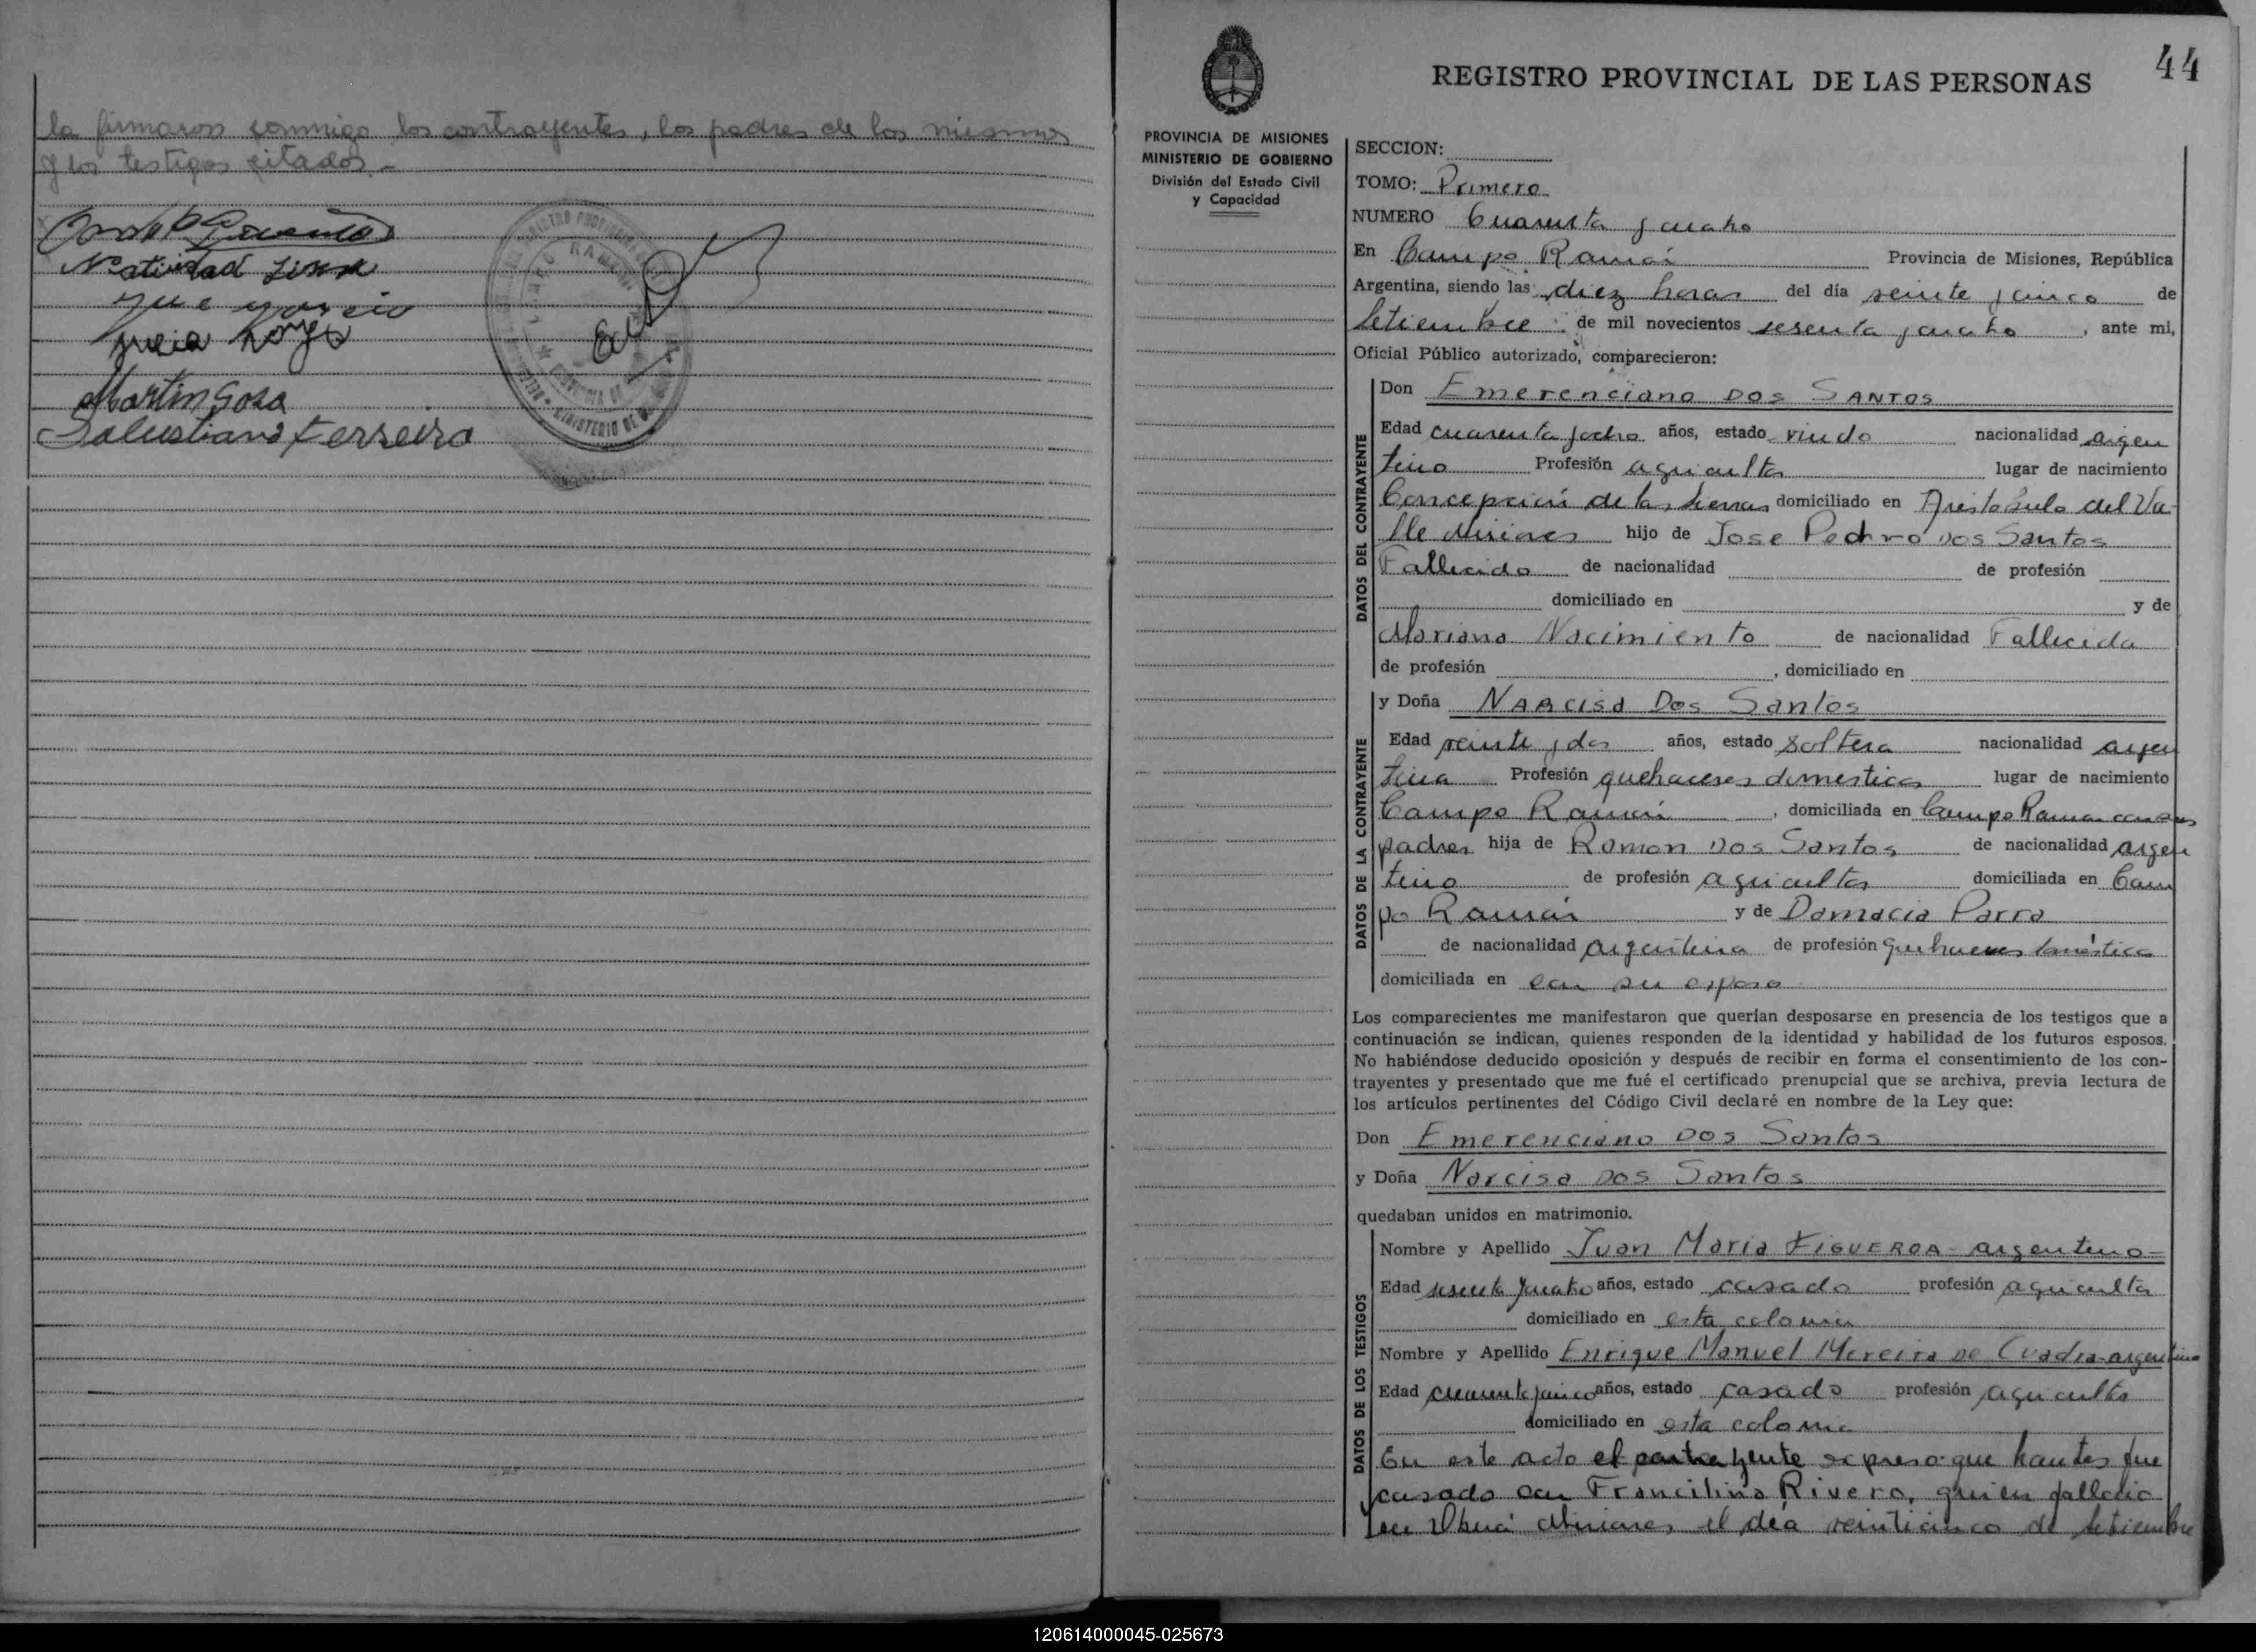 la firmaron conmigo los contrayentes, los padres de los mismos
y los testigos citados.-
Natividad
Martin Sosa
Salustiano Ferreira
44
REGISTRO PROVINCIAL DE LAS PERSONAS
PROVINCIA DE MISIONES
MINISTERIO DE GOBIERNO
División del Estado Civil
y Capacidad
SECCION:
TOMO: Primero
NUMERO Cuarenta y cuatro
En Campo Ramón Provincia de Misiones, República
Argentina, siendo las diez horas del día veinte y cinco de
Setiembre de mil novecientos sesenta y cuatro, ante mi,
Oficial Público autorizado, comparecieron:
DATOS DEL CONTRAYENTE
Don Emerenciano Dos Santos
Edad cuarenta y ocho años, estado viudo nacionalidad argen
tino Profesión agricultor lugar de nacimiento
Concepción de las sierras domiciliado en Aristobulo del Va-
lle Misiones hijo de Jose Pedrro Dos Santos
Fallecido de nacionalidad de profesión
domiciliado en y de
Mariana Nacimiento de nacionalidad Fallecida
de profesión , domiciliado en
DATOS DE LA CONTRAYENTE
y Doña Narcisa Dos Santos
Edad veinte y dos años, estado soltera nacionalidad argen
tina Profesión quehaceres domesticos lugar de nacimiento
Campo Ramón, domiciliada en Campo Ramon con sus
padres hija de Ramon Dos Santos de nacionalidad argen
tino de profesión agricultor domiciliada en Cam
po Ramón y de Damacia Parra
de nacionalidad argentina de profesión quehaceres domésticos
domiciliada en con su esposo
Los comparecientes me manifestaron que querían desposarse en presencia de los testigos que a
continuación se indican, quienes responden de la identidad y habilidad de los futuros esposos.
No habiéndose deducido oposición y después de recibir en forma el consentimiento de los con-
trayentes y presentado que me fué el certificado prenupcial que se archiva, previa lectura de
los artículos pertinentes del Código Civil declaré en nombre de la Ley que:
Don Emerenciano Dos Santos
y Doña Narcisa Dos Santos
quedaban unidos en matrimonio.
DATOS DE LOS TESTIGOS
Nombre y Apellido Juan Maria Figueroa - argentino -
Edad sesenta y cuatro años, estado casado profesión agricultor
domiciliado en esta colonia
Nombre y Apellido Enrique Manuel Moreira De Cuadra - argentino
Edad cuarenta y cinco años, estado casado profesión agricultor
domiciliado en esta colonia
En este acto el contrayente expreso que hantes fue
casado con Francilina Rivero, quien fallecio
en Oberá Misiones el día veinticinco de setiembre
120614000045-025673